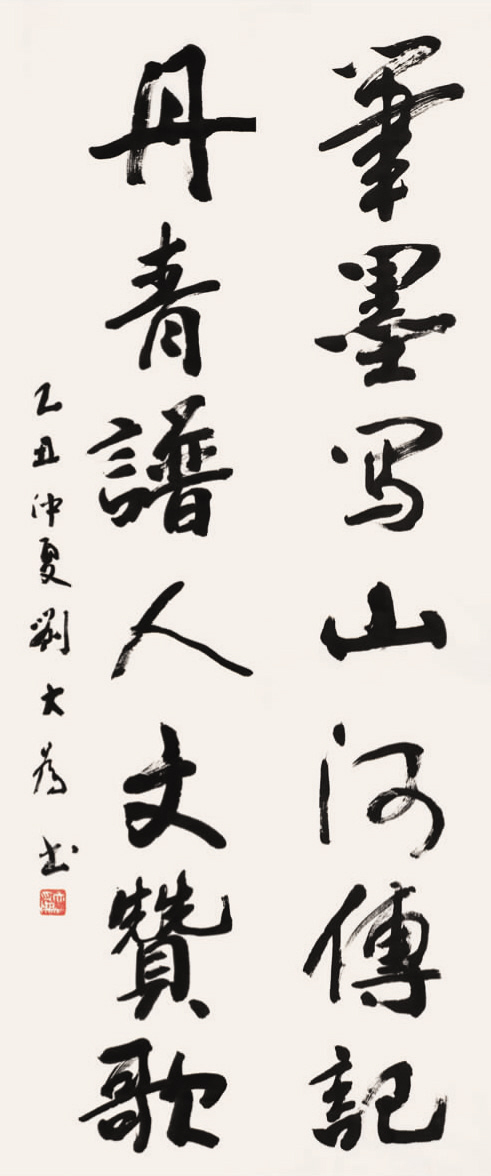 筆墨写山河傳記
丹青譜人文贊歌
乙丑仲夏劉大為书